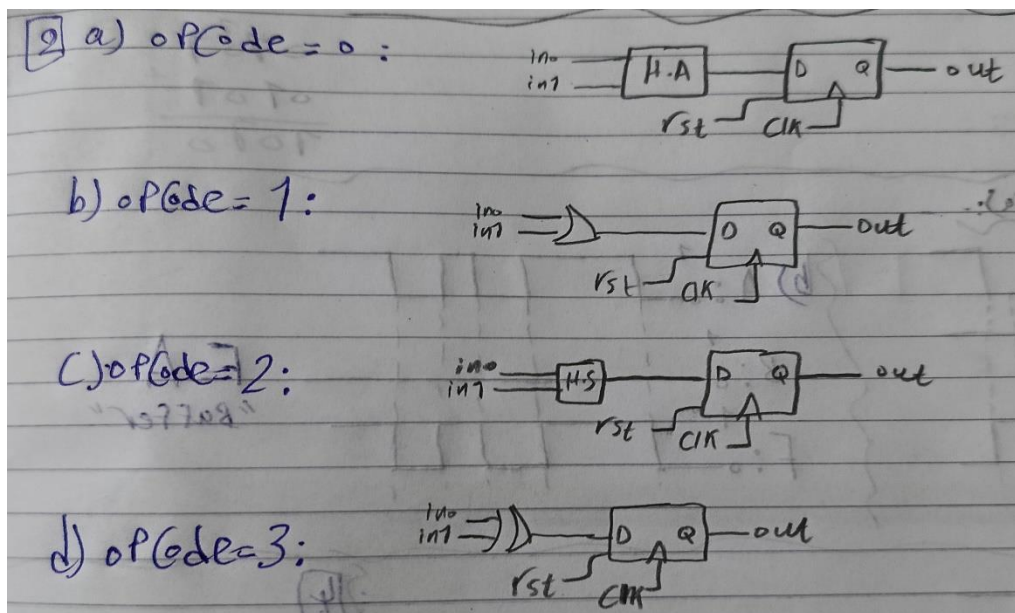 2 a) opCode = 0 :
in0
in1
H.A
D Q
out
rst
Clk
b) opCode = 1 :
in0
in1
D Q
out
rst
clk
C) opCode = 2 :
in0
in1
H.S
D Q
out
rst
Clk
"Buffer"
d) opCode = 3 :
in0
in1
D Q
out
rst
Clk